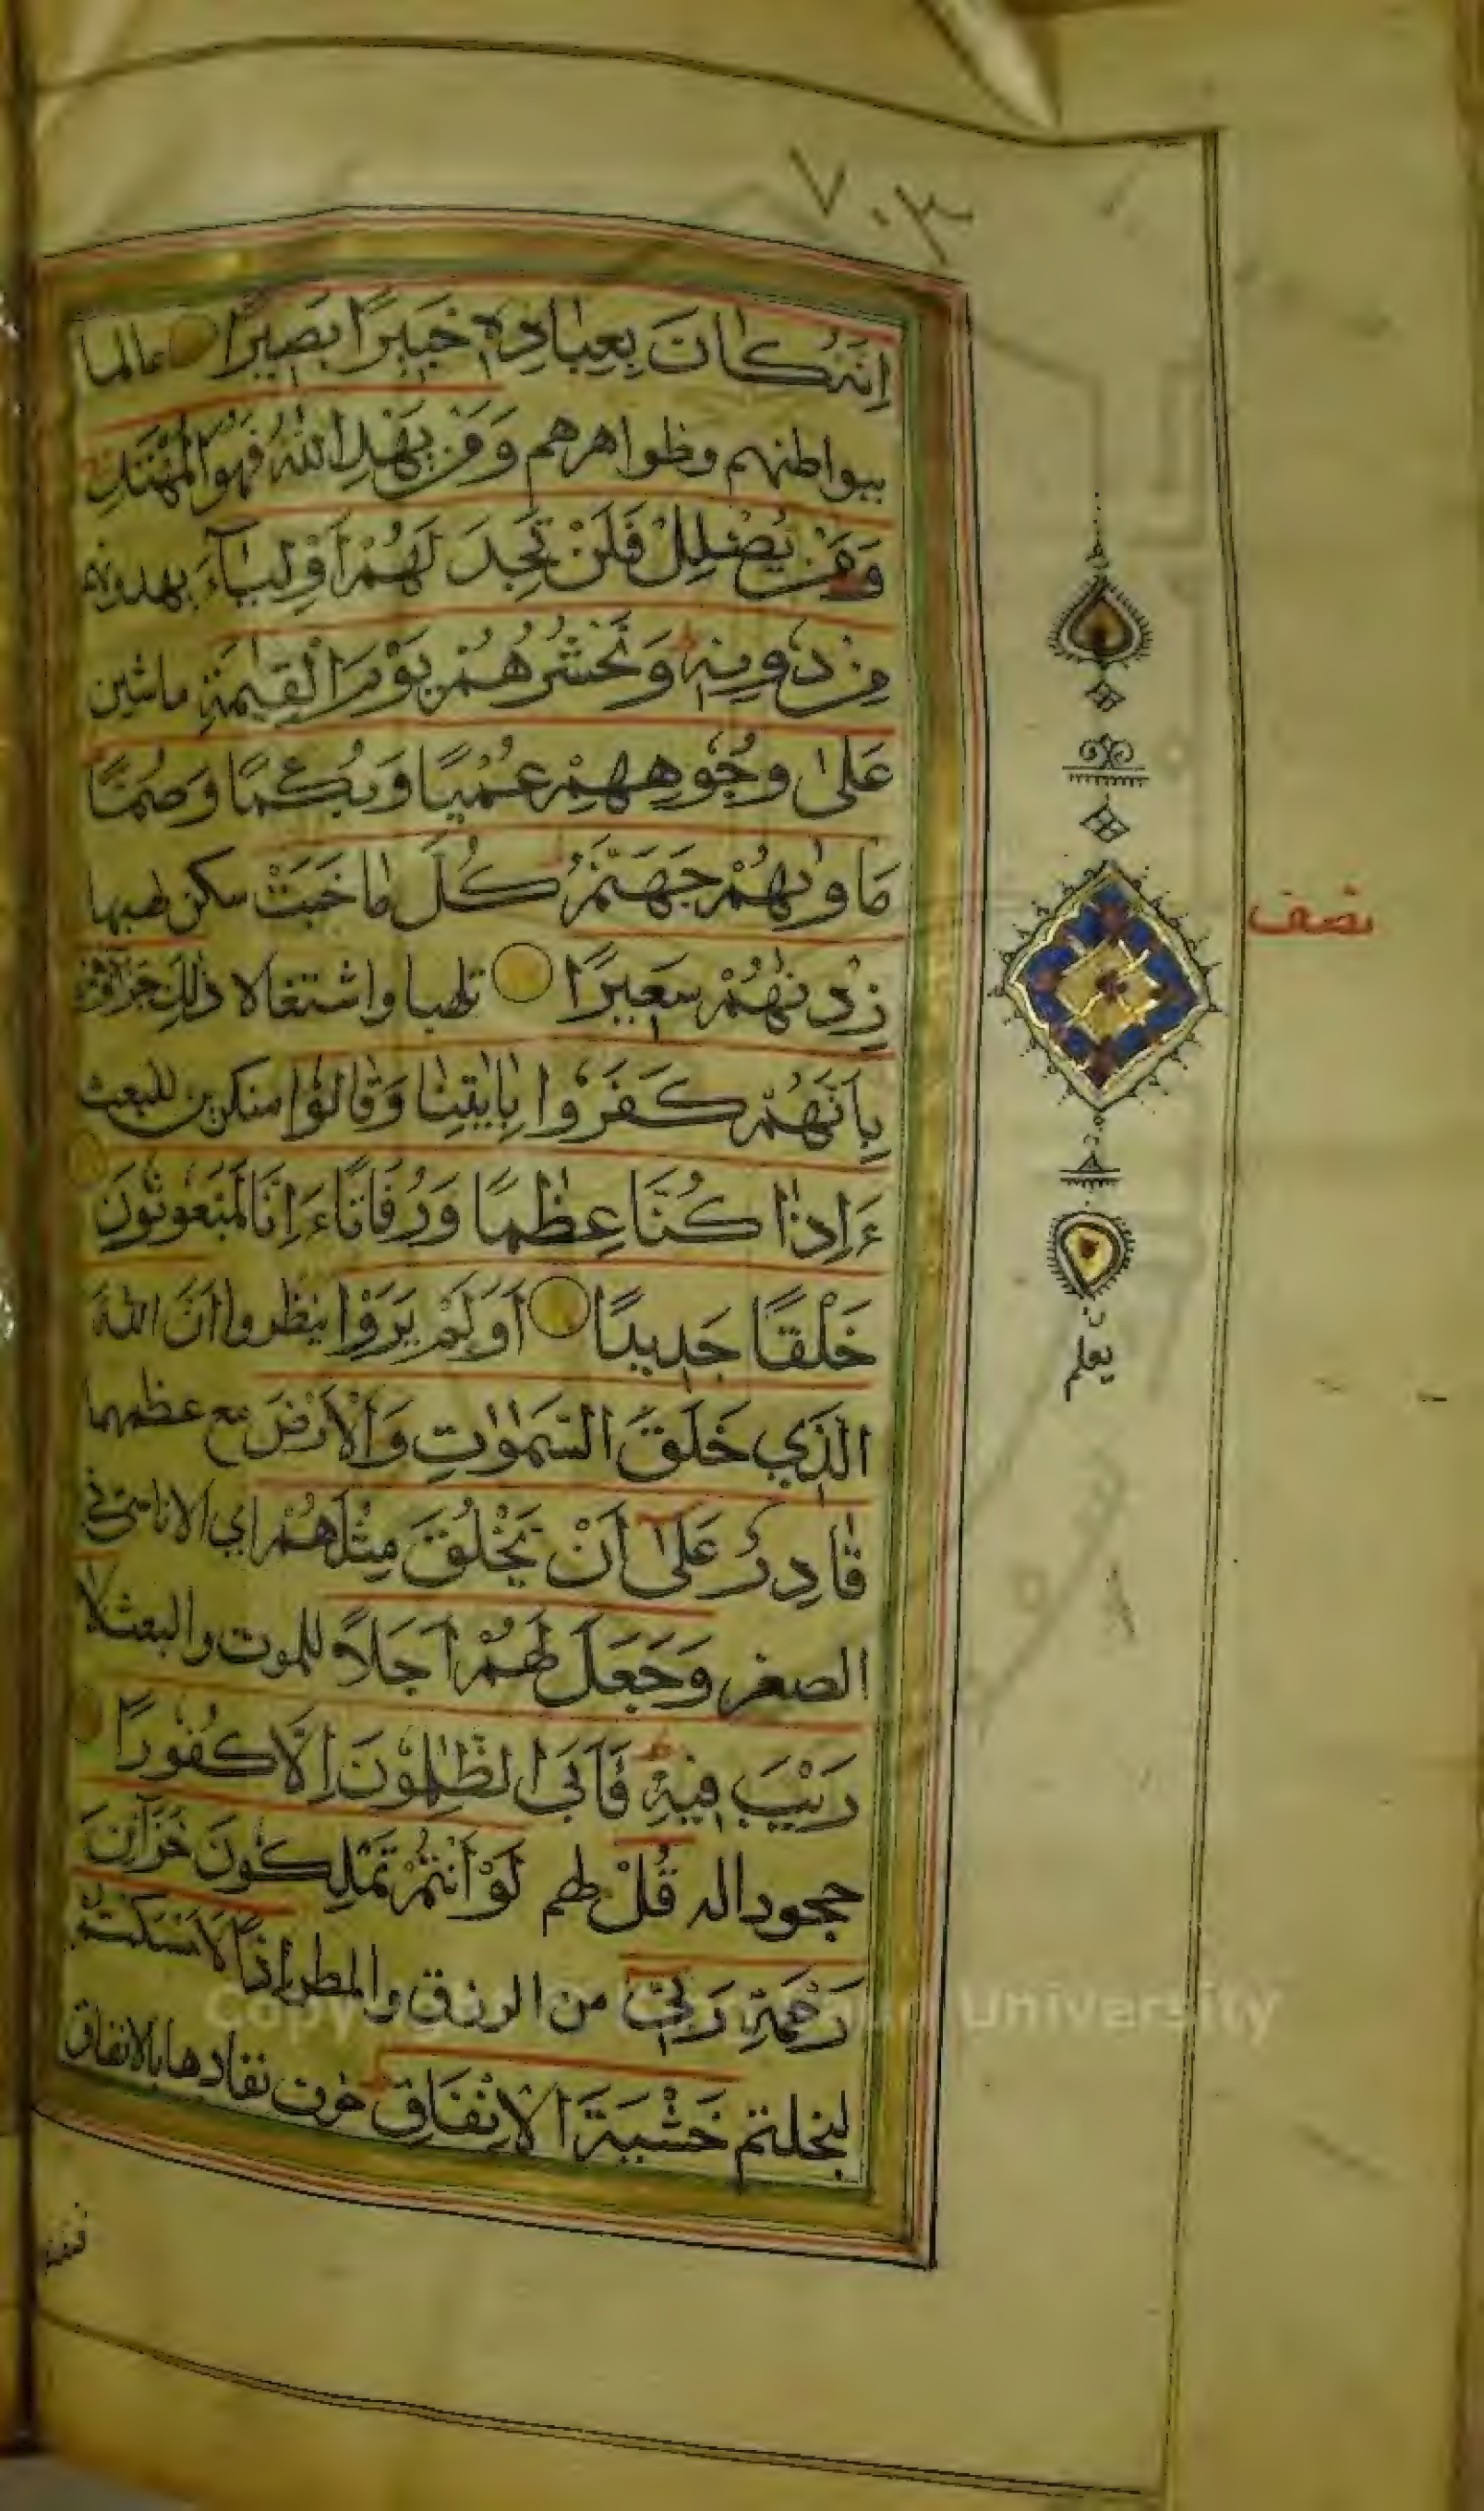 ٧٠٣
اِنَّهُ كَانَ بِعِبَادِهٖ خَبٖيرًا بَصٖيرًا عالما
ببواطنهم وظواهرهم وَمَنْ يَهْدِ اللّٰهُ فَهُوَ الْمُهْتَدِ
وَمَنْ يُضْلِلْ فَلَنْ تَجِدَ لَهُمْ اَوْلِيَآءَ يهدونهم
مِنْ دُونِهٖ ط وَنَحْشُرُهُمْ يَوْمَ الْقِيٰمَةِ ماشين
عَلٰى وُجُوهِهِمْ عُمْيًا وَبُكْمًا وَصُمًّا
مَاْوٰيهُمْ جَهَنَّمُ كُلَّمَا خَبَتْ سكن لهبها
زِدْنٰهُمْ سَعٖيرًا تلهبا واشتغالا ذٰلِكَ جَزَآؤُهُمْ
بِاَنَّهُمْ كَفَرُوا بِاٰيٰتِنَا وَقَالُوا منكرين للبعث
ءَاِذَا كُنَّا عِظٰمًا وَرُفَاتًا ءَاِنَّا لَمَبْعُوثُونَ
خَلْقًا جَدٖيدًا اَوَلَمْ يَرَوْا ينظروا اَنَّ اللّٰهَ
الَّذٖي خَلَقَ السَّمٰوٰتِ وَالْاَرْضَ مع عظمهما
قَادِرٌ عَلٰٓى اَنْ يَخْلُقَ مِثْلَهُمْ اي الاناسى في
الصغر وَجَعَلَ لَهُمْ اَجَلًا للموت والبعث لَا
رَيْبَ فٖيهِ ط فَاَبَى الظّٰلِمُونَ اِلَّا كُفُورًا
جحودا له قُلْ لهم لَوْ اَنْتُمْ تَمْلِكُونَ خَزَآئِنَ
رَحْمَةِ رَبّٖٓي من الرزق والمطر اِذًا لَاَمْسَكْتُمْ
لبخلتم خَشْيَةَ الْاِنْفَاقِ ط خوف نفادها بالانفاق
نصف
يعلم
Copy University